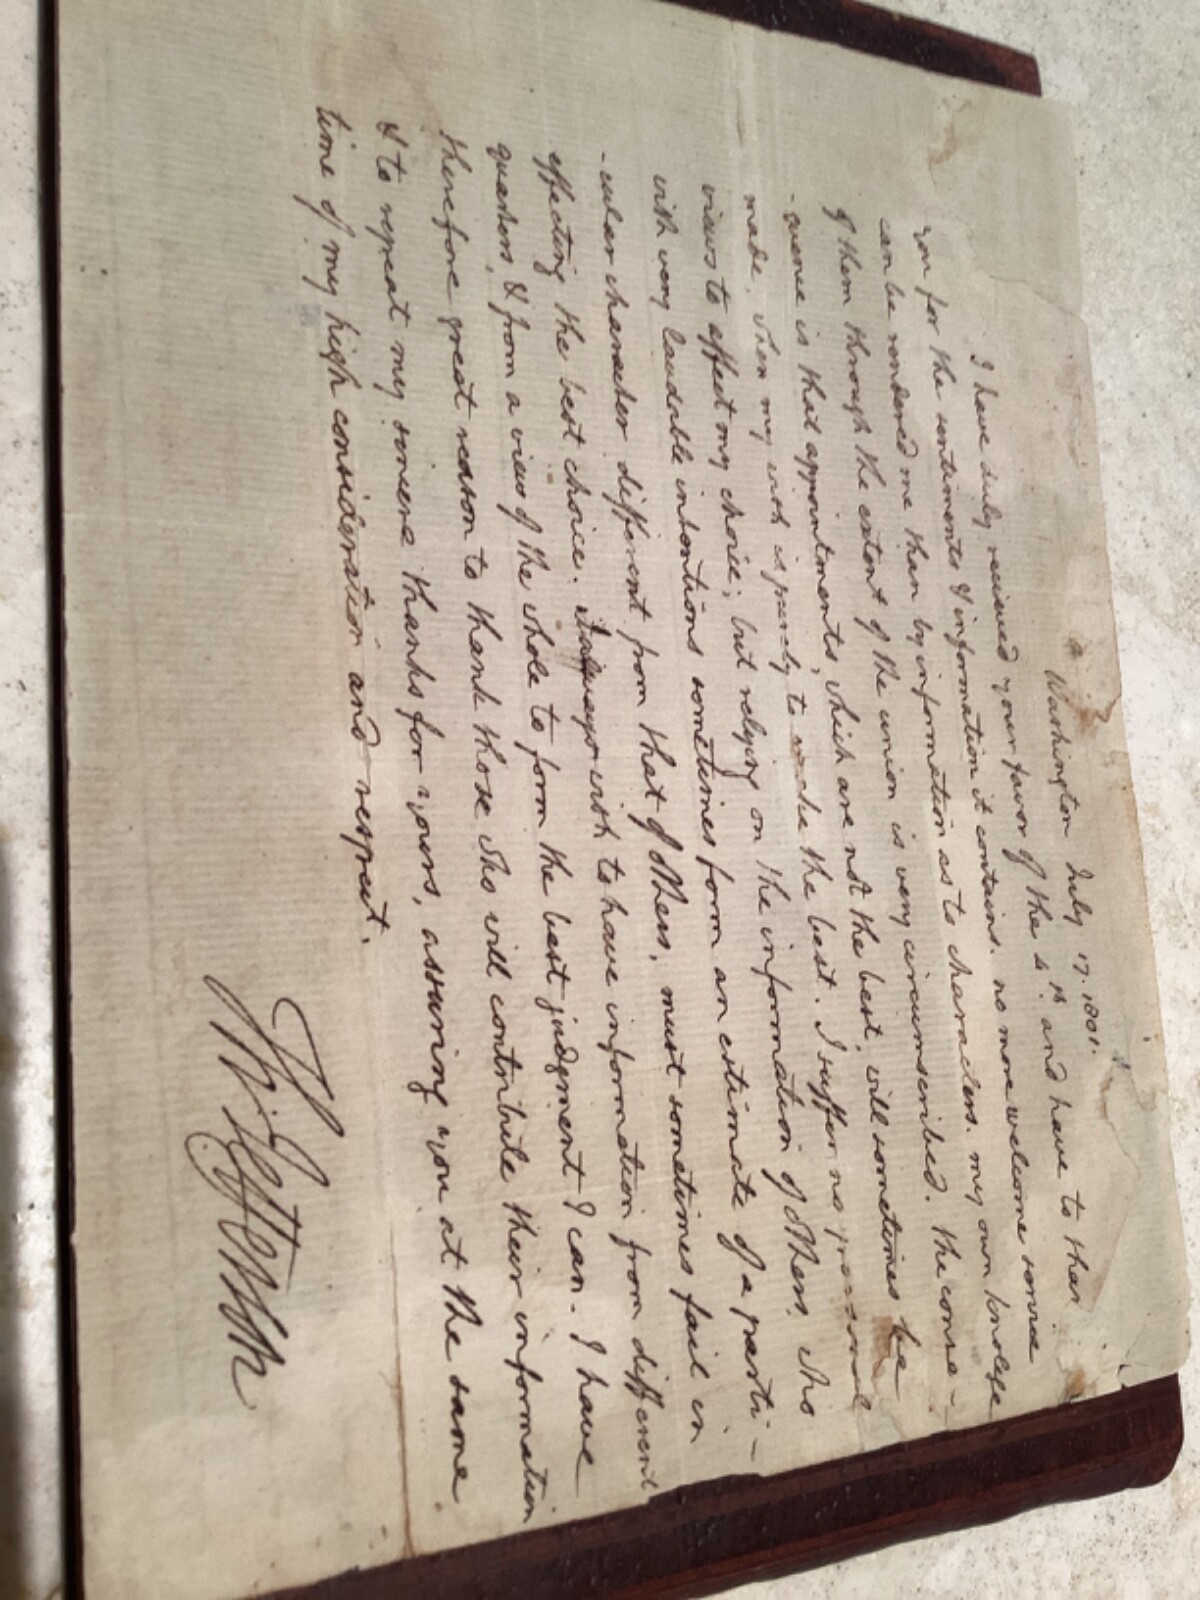 Washington July 17. 1801.
I have duly recieved your favor of the 4th and have to than
you for the sentiments & information it contains. no more welcome service
can be rendered me than by information as to characters. my own knolege
of them through the extent of the union is very circumscribed. the conse-
-quence is that appointments, which are not the best, will sometimes be
made. when my wish is purely to make the best. I suffer no personal
views to affect my choice; but relying on the information of others, who
with very laudable intentions sometimes form an estimate of a parti-
-cular character different from that of others, must sometimes fail in
effecting the best choice. I always wish to have information from different
quarters, & from a view of the whole to form the best judgment I can. I have
therefore great reason to thank those who will contribute their information
& to repeat my sincere thanks for yours, assuring you at the same
time of my high consideration and respect.
Th: Jefferson